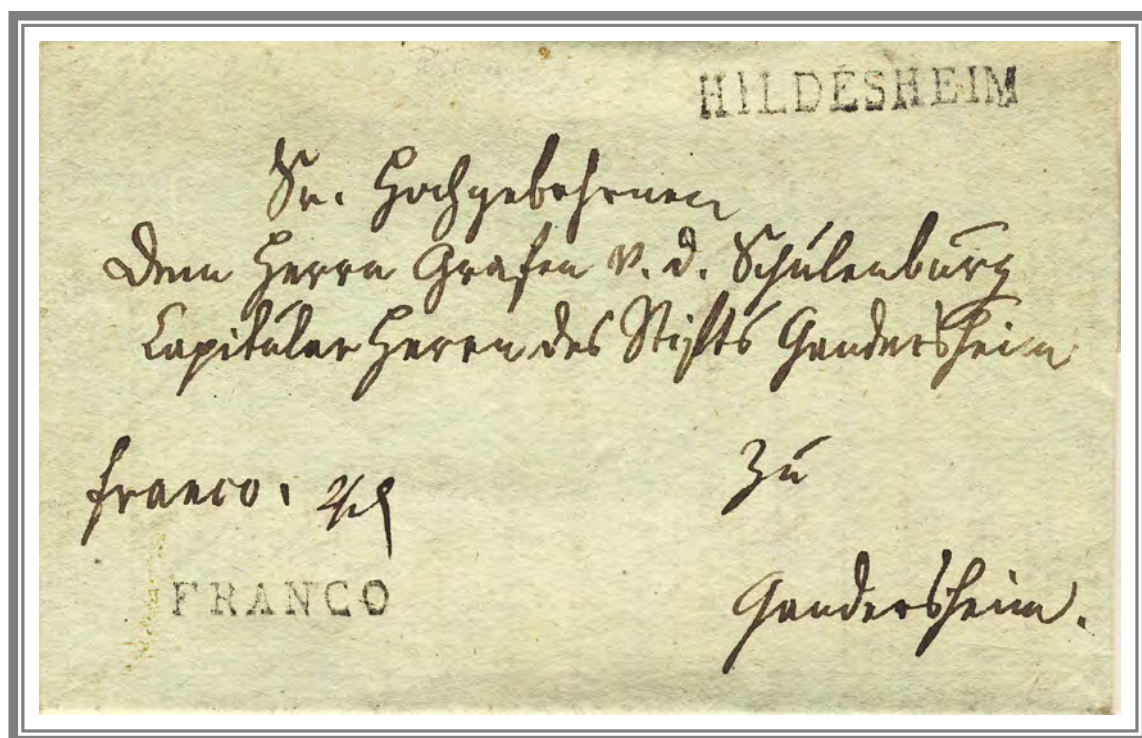 HILDESHEIM
Sr. Hochgebohrnen
Dem Herrn Grafen v. d. Schulenburg
Capitular Herrn des Stifts Gandersheim
zu
franco.
FRANCO
Gandersheim.